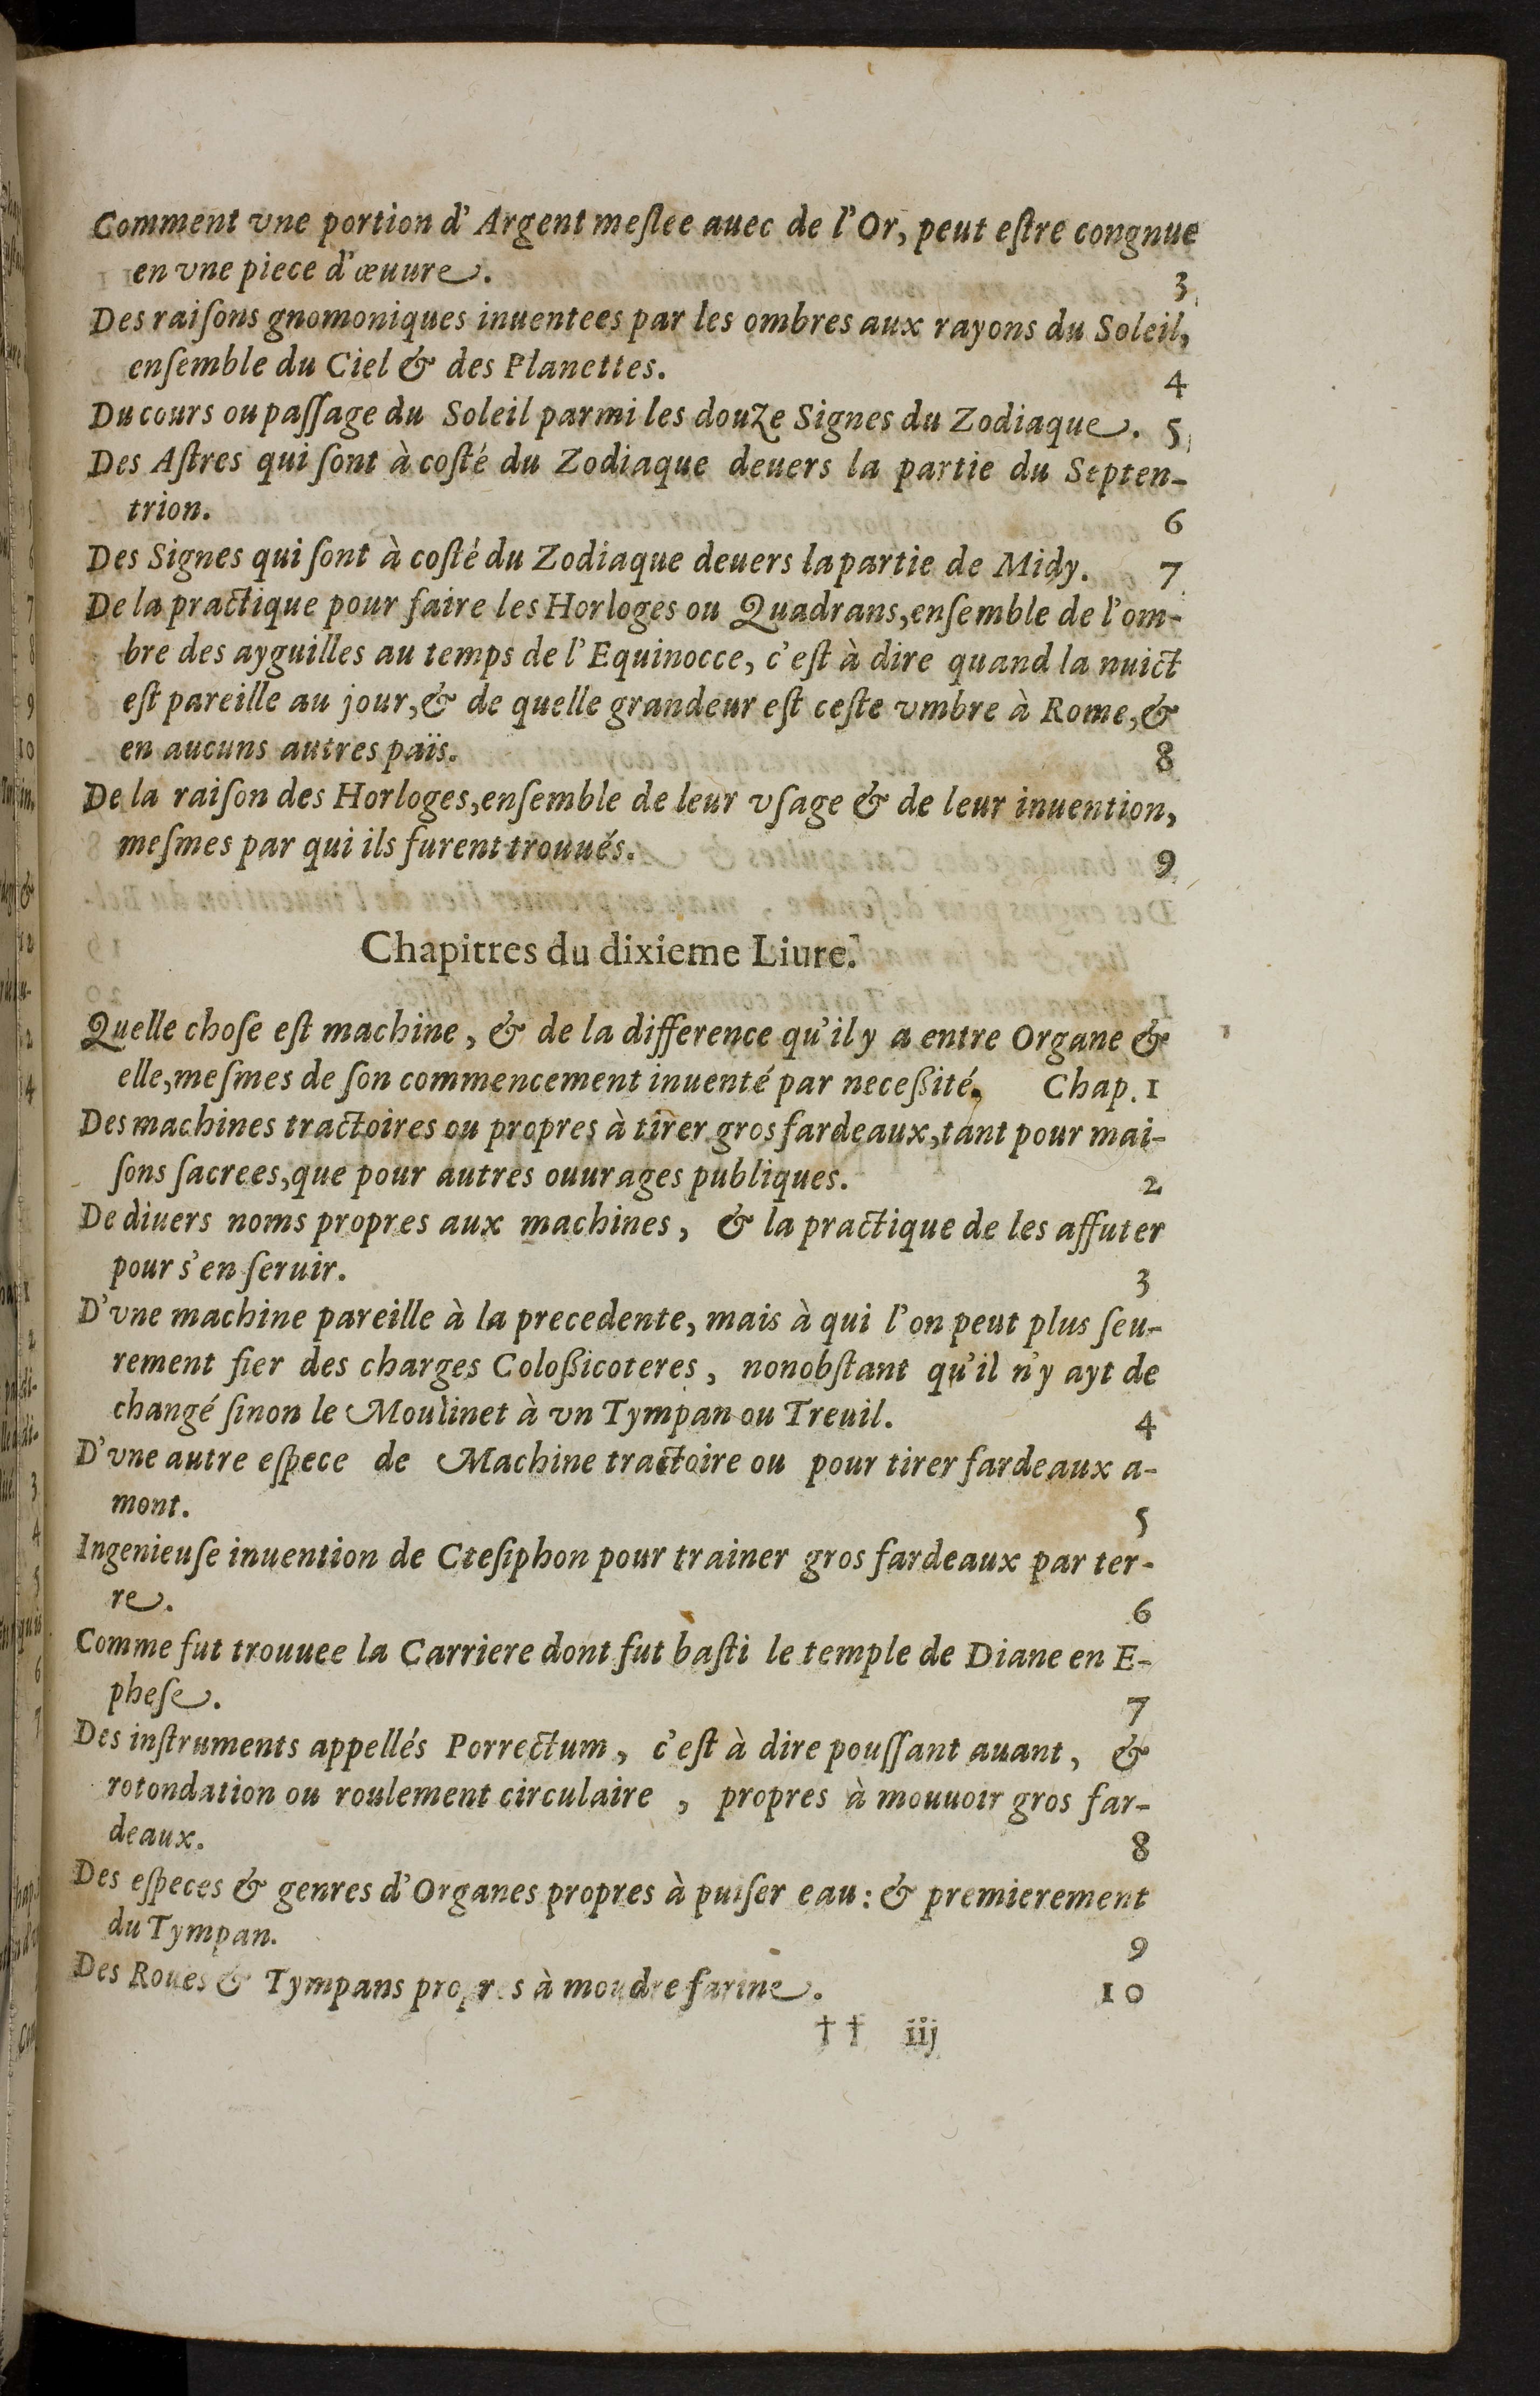 Comment vne portion d'Argent meſlee auec de l'Or, peut eſtre congnue
en vne piece d'œuure. 3
Des raiſons gnomoniques inuentees par les ombres aux rayons du Soleil,
enſemble du Ciel & des Planettes. 4
Du cours ou paſſage du Soleil parmi les douze Signes du Zodiaque. 5
Des Aſtres qui ſont à coſté du Zodiaque deuers la partie du Septen-
trion. 6
Des Signes qui ſont à coſté du Zodiaque deuers la partie de Midy. 7
De la practique pour faire les Horloges ou Quadrans, enſemble de l'om-
bre des ayguilles au temps de l'Equinocce, c'eſt à dire quand la nuict
eſt pareille au jour, & de quelle grandeur eſt ceſte vmbre à Rome, &
en aucuns autres païs. 8
De la raiſon des Horloges, enſemble de leur vſage & de leur inuention,
meſmes par qui ils furent trouués. 9
Chapitres du dixieme Liure.
Quelle choſe eſt machine, & de la difference qu'il y a entre Organe &
elle, meſmes de ſon commencement inuenté par neceßité. Chap. 1
Des machines tractoires ou propres à tirer gros fardeaux, tant pour mai-
ſons ſacrees, que pour autres ouurages publiques. 2
De diuers noms propres aux machines, & la practique de les affuter
pour s'en ſeruir. 3
D'vne machine pareille à la precedente, mais à qui l'on peut plus ſeu-
rement fier des charges Coloßicoteres, nonobſtant qu'il n'y ayt de
changé ſinon le Moulinet à vn Tympan ou Treuil. 4
D'vne autre eſpece de Machine tractoire ou pour tirer fardeaux a-
mont. 5
Ingenieuſe inuention de Cteſiphon pour trainer gros fardeaux par ter-
re. 6
Comme fut trouuee la Carriere dont fut baſti le temple de Diane en E-
pheſe. 7
Des inſtruments appellés Porrectum, c'eſt à dire pouſſant auant, &
rotondation ou roulement circulaire, propres à mouuoir gros far-
deaux. 8
Des eſpeces & genres d'Organes propres à puiſer eau: & premierement
du Tympan. 9
Des Roues & Tympans propres à moudre farine. 10
†† iij